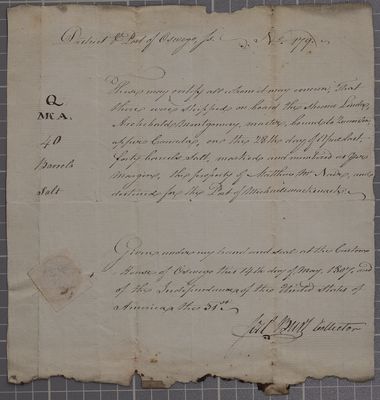 District & Port of Oswego, ss. No. 179.
Q
McA.
40
Barrels
Salt
These may certify all whom it may concern, That
there were shipped on board the
Archibald Montgomery, master, bound to
upper Canada, on the 28th day of April last,
forty barrels Salt, marked and numbered as per
Margin, the property of Matthew Mc Nair, and
destined for the Port of Michilimackinack.
Given under my hand and seal at the Custom
House of Oswego this 14th day of May, 1807, and
of the Independence of the United States of
America, the 31st.
Joel Burt Collector